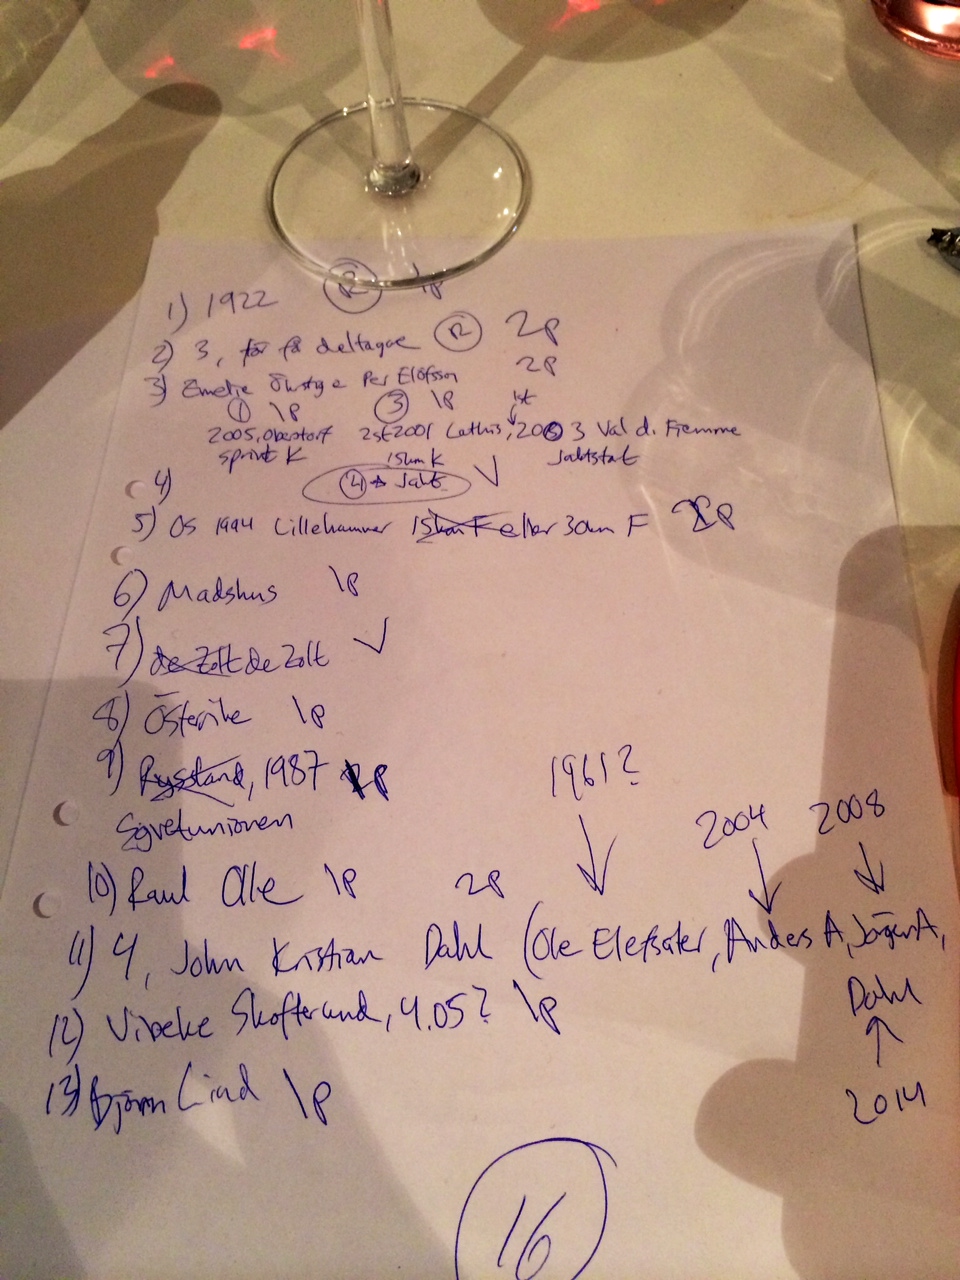 1) 1922 R 1p
2) 3, för få deltagae R 2p
3) Emelie Öhstig e Per Elofsson 2p
① 1p ③ 1p 1st
2005, Oberstorf 2st 2001 Lathis, 2003 Val di Fiemme
sprint K 15km K Jaktstat
4) ④ Jakt ✓
5) OS 1994 Lillehammer 15km F eller 30km F 2p
6) Madshus 1p
7) de Zolt de Zolt ✓
8) Österrike 1p
9) Ryssland, 1987 2p
Sovjetunionen
1961?
2004 2008
10) Raul Olle 1p 2p
11) 4, John Kristian Dahl (Ole Elefsäter, Anders A, Jörgen A,
Dahl
12) Vibeke Skofterund, 4.05? 1p
13) Björn Lind 1p
2014
16